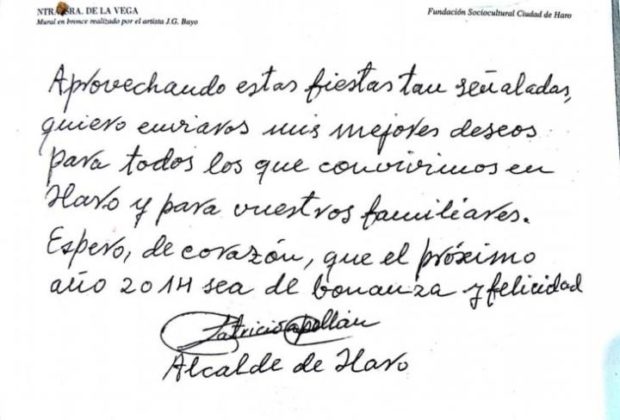 NTRA. SRA. DE LA VEGA
Mural en bronce realizado por el artista J.G. Bayo
Fundación Sociocultural Ciudad de Haro
Aprovechando estas fiestas tan señaladas,
quiero enviaros mis mejores deseos
para todos los que convivimos en
Haro y para vuestros familiares.
Espero, de corazón, que el próximo
año 2014 sea de bonanza y felicidad
Patricio Capellán
Alcalde de Haro